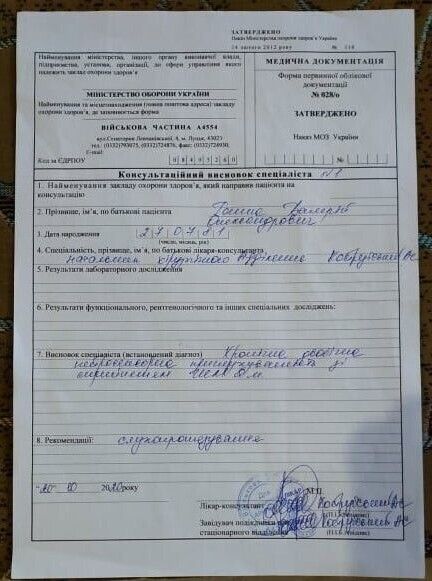 ЗАТВЕРДЖЕНО
Наказ Міністерства охорони здоров'я України
14 лютого 2012 року № 110
Найменування міністерства, іншого органу виконавчої влади,
підприємства, установи, організації, до сфери управління якого
належить заклад охорони здоров'я
МІНІСТЕРСТВО ОБОРОНИ УКРАЇНИ
Найменування та місцезнаходження (повна поштова адреса) закладу
охорони здоров'я, де заповнюється форма
ВІЙСЬКОВА ЧАСТИНА А4554
м. Луцьк, 43023
тел: (0332)793075, (0332)724876, факс: (0332)724930,
E-mail:
Код за ЄДРПОУ 08495260
МЕДИЧНА ДОКУМЕНТАЦІЯ
Форма первинної облікової
документації
№ 028/о
ЗАТВЕРДЖЕНО
Наказ МОЗ України
№
Консультаційний висновок спеціаліста №1
1. Найменування закладу охорони здоров'я, який направив пацієнта на
консультацію
2. Прізвище, ім'я, по батькові пацієнта Валерій
Олександрович
3. Дата народження 27 07 81
(число, місяць, рік)
4. Спеціальність, прізвище, ім'я, по батькові лікаря-консультанта
начальник
5. Результати лабораторного дослідження
6. Результати функціонального, рентгенологічного та інших спеціальних досліджень:
7. Висновок спеціаліста (встановлений діагноз) Хронічна двобічна
нейросенсорна приглухуватість зі
сприйняттям
8. Рекомендації: слухопротезування
"20" 10 2020 року
М.П.
Лікар-консультант
(П.І.Б. підпис)
Завідувач
стаціонарного
(П.І.Б. підпис)